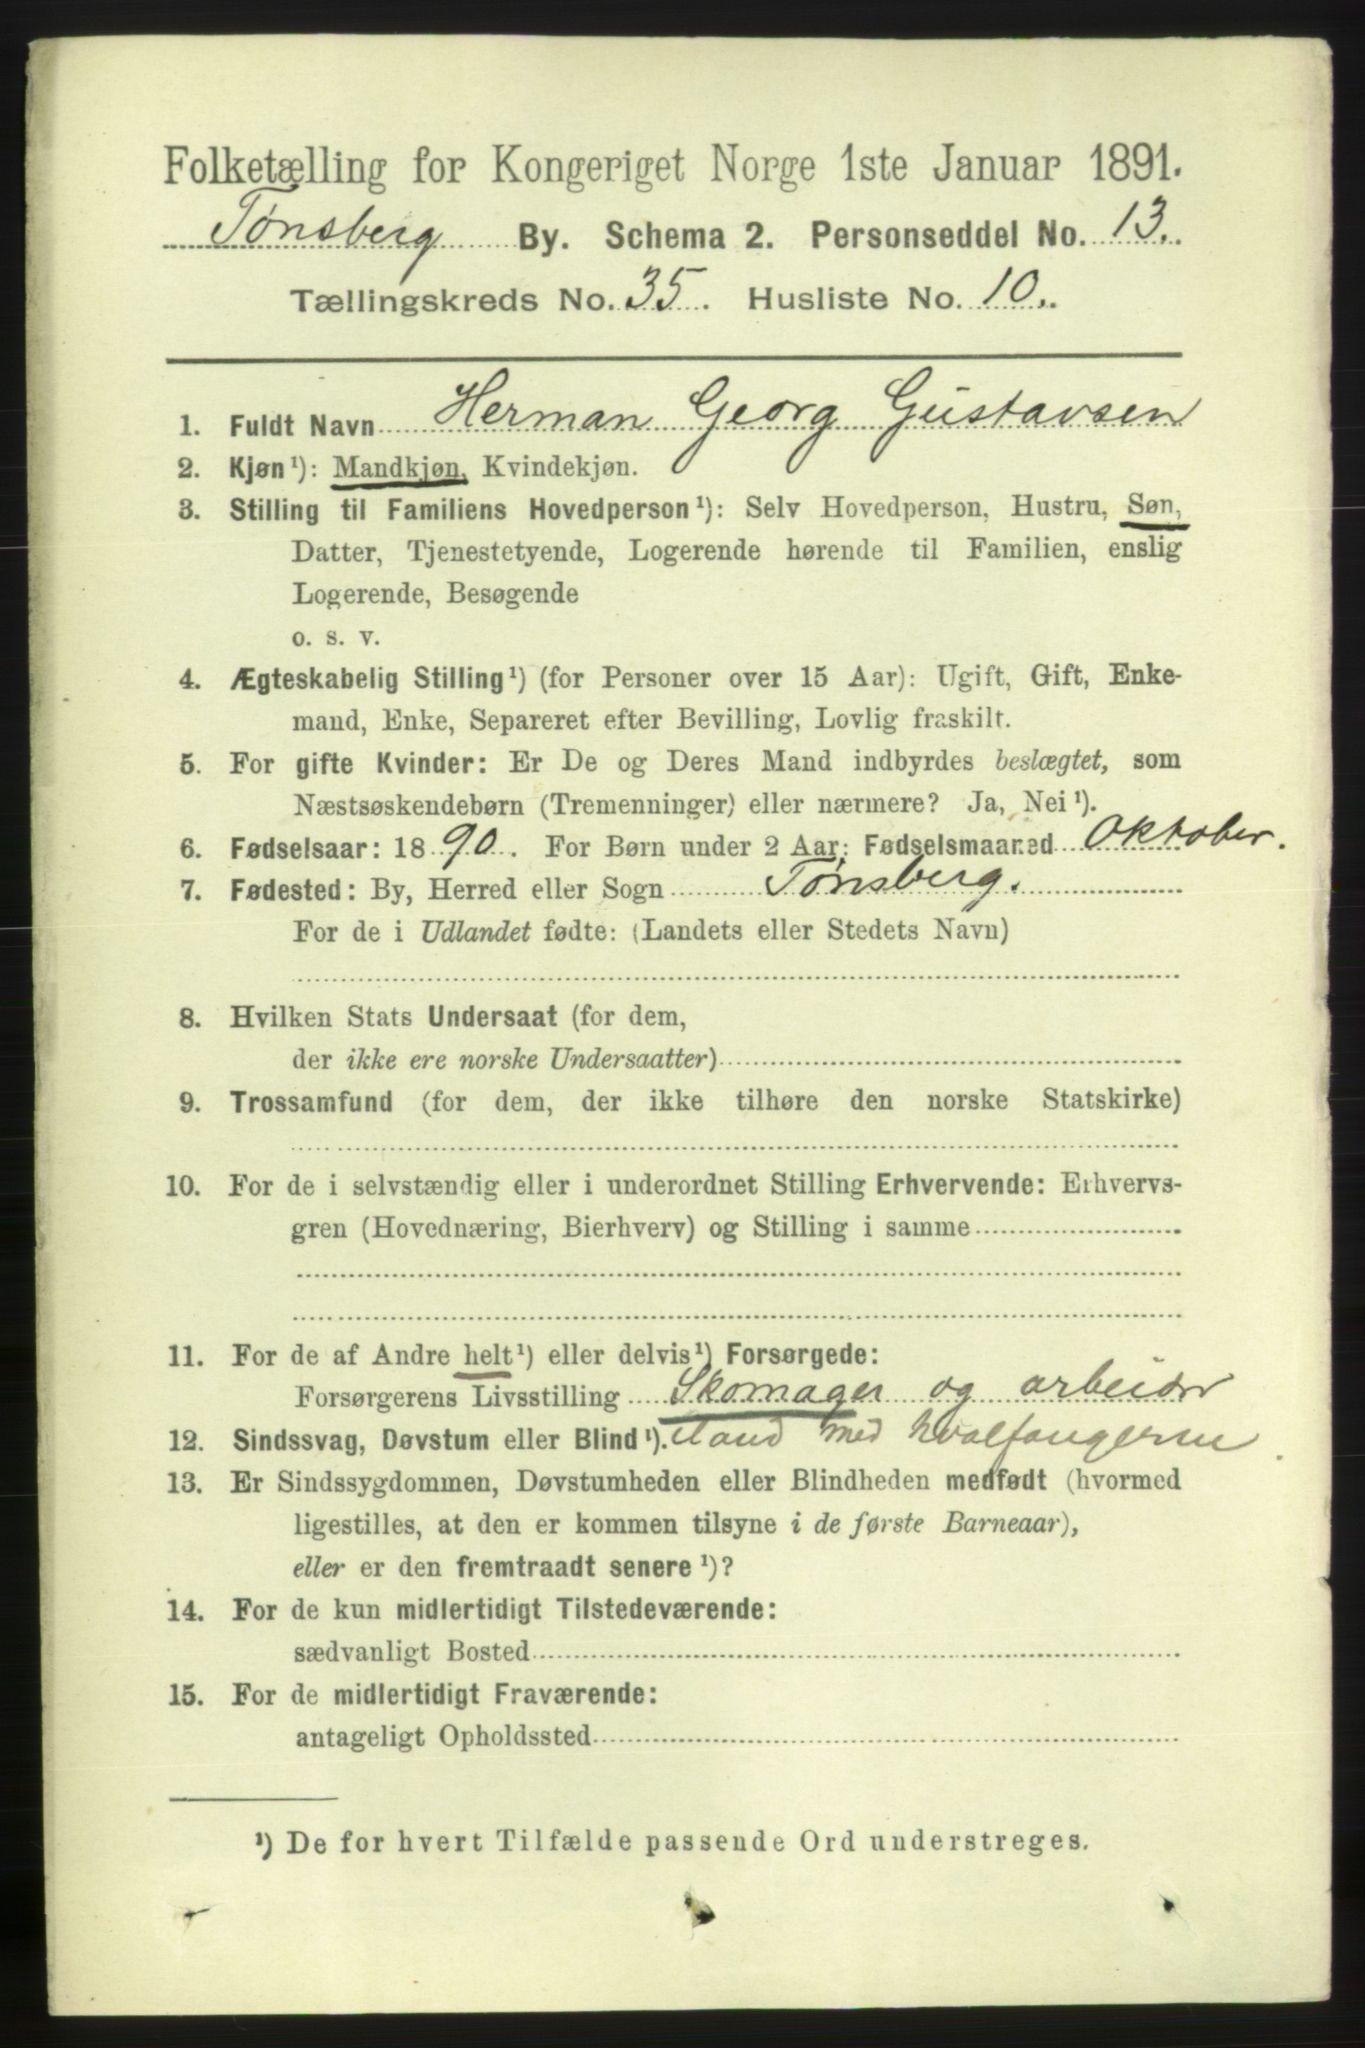 Folketælling for Kongeriget Norge 1ste Januar 1891.
Tønsberg By. Schema 2. Personseddel No. 13.
Tællingskreds No. 35. Husliste No. 10.
1. Fuldt Navn Herman Georg Gustavsen
2. Kjøn¹): Mandkjøn, Kvindekjøn.
3. Stilling til Familiens Hovedperson¹): Selv Hovedperson, Hustru, Søn,
Datter, Tjenestetyende, Logerende hørende til Familien, enslig
Logerende, Besøgende
o. s. v.
4. Ægteskabelig Stilling¹) (for Personer over 15 Aar): Ugift, Gift, Enke-
mand, Enke, Separeret efter Bevilling, Lovlig fraskilt.
5. For gifte Kvinder: Er De og Deres Mand indbyrdes beslægtet, som
Næstsøskendebørn (Tremenninger) eller nærmere? Ja, Nei¹).
6. Fødselsaar: 1890. For Børn under 2 Aar: Fødselsmaaned Oktober.
7. Fødested: By, Herred eller Sogn Tønsberg.
For de i Udlandet fødte: (Landets eller Stedets Navn)
8. Hvilken Stats Undersaat (for dem,
der ikke ere norske Undersaatter)
9. Trossamfund (for dem, der ikke tilhøre den norske Statskirke)
10. For de i selvstændig eller i underordnet Stilling Erhvervende: Erhvervs-
gren (Hovednæring, Bierhverv) og Stilling i samme
11. For de af Andre helt¹) eller delvis¹) Forsørgede:
Forsørgerens Livsstilling Skomager og arbeider
12. Sindssvag, Døvstum eller Blind¹). med hvalfangerne
13. Er Sindssygdommen, Døvstumheden eller Blindheden medfødt (hvormed
ligestilles, at den er kommen tilsyne i de første Barneaar),
eller er den fremtraadt senere¹)?
14. For de kun midlertidigt Tilstedeværende:
sædvanligt Bosted
15. For de midlertidigt Fraværende:
antageligt Opholdssted
¹) De for hvert Tilfælde passende Ord understreges.